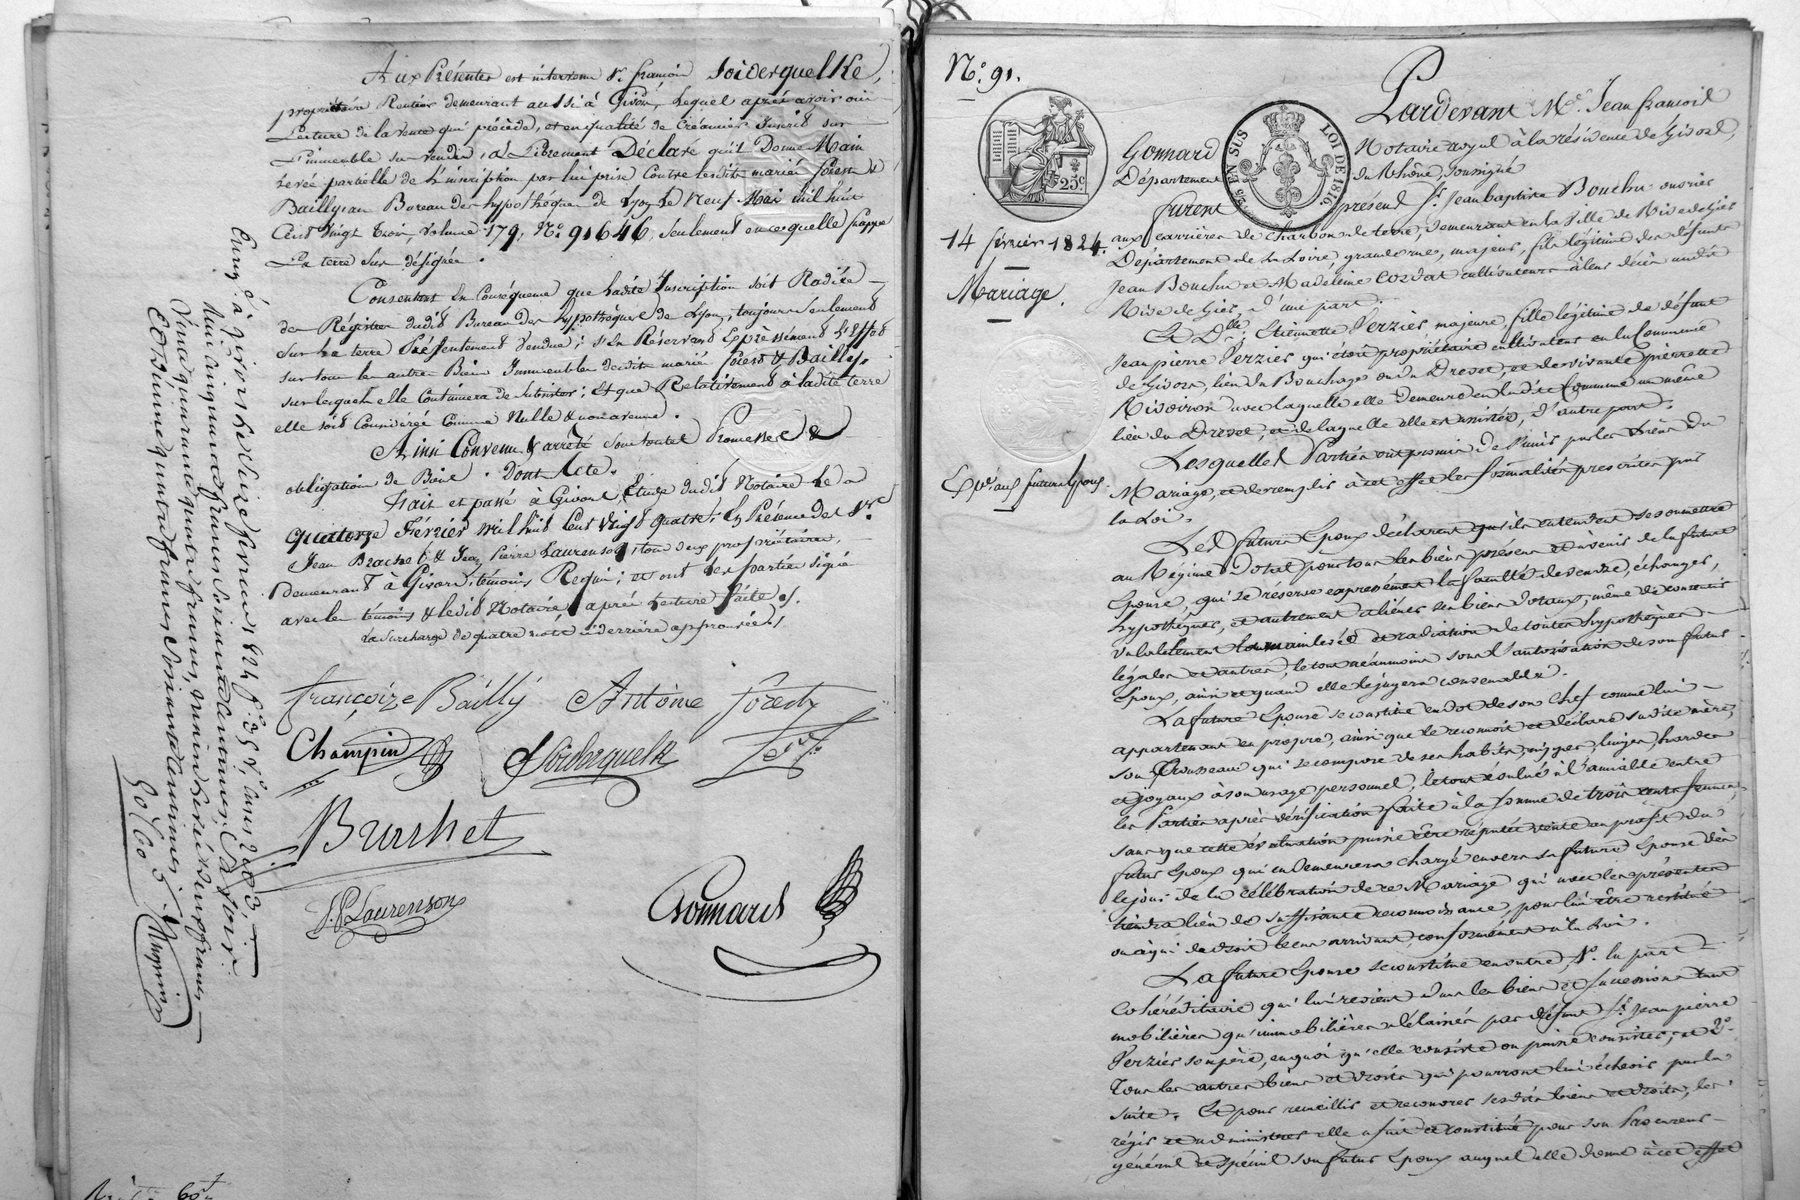 Aux Présentes est intervenu Sr. françois Soiderquelke,
propriétaire Rentier demeurant aussi à Givors, Lequel après avoir oui
Lecture de la vente qui précède, et en qualité de Créancier Inscrit sur
L'immeuble sus vendu, a Librement Déclaré qu'il Donne Main
Levée partielle de L'inscription par lui prise Contre lesdits mariés forest &
Bailly au Bureau des hypothèques de Lyon Le Neuf Mai mil huit
Cent Vingt Trois, Volume 179, No. 91646, Seulement en ce qu'elle frappe
La terre Sus désignée.
Consentant En Conséquence que Ladite Inscription soit Radiée
des Régistres dudit Bureau des hypothèques de Lyon, toujours Seulement
sur La terre Présentement Vendue; s'En Réservant Expressément L'Effet
sur tous les autres Biens Immeubles desdits mariés forest & Bailly,
sur lesquels elle Continuera de subsister; Et que Relativement à ladite terre
elle soit Considérée Comme Nulle & non avenue.
Ainsi Convenu & arrêté Sous toutes Promesses &
obligation de Biens. Dont Acte.
Fait et passé à Givors, Etude dudit Notaire Le
Quatorze Février mil huit Cent Vingt quatre; En Présence des Srs.
Jean Brachet & Jean Pierre Laurenson, tous deux propriétaires,
demeurant à Givors, témoins Requis; et ont les parties signé
avec les témoins & ledit Notaire, après Lecture faite.
La surcharge de quatre mots ci derrière approuvée.
françoize Bailly Antoine forest
Champin Soiderquelk
Brachet
J. P. Laurenson
Gonnard
Enreg. à Givors le seize fevrier 1824 fo. 35 Vo. Cases 2 et 3,
Vingt quatre francs, main levée deux francs
No. 91.
Pardevant Me. Jean françois
Gonnard Notaire royal à la résidence de Givors,
Département du Rhône, soussigné
25c
EN SUS LOI DE 1816
furent présens Sr. Jean baptiste Bouchu ouvrier
14 février 1824.
aux carrières de charbon de terre, demeurant en la Ville de Rive de Gier
Département de la Loire, grande rue, majeur, fils légitime des défunts
Mariage.
Jean Bouchu et Madeleine Cordat cultivateurs à leur décès audit
Rive de Gier, d'une part.
Et Dlle. Etiennette Verzier majeure, fille légitime de défunt
Jean pierre Verzier qui était propriétaire cultivateur en la Commune
de Givors, lieu du Bouchage ou du Drevet, et de vivante pierrette
Rivoiron avec laquelle elle demeure en ladite Commune au même
lieu du Drevet, et de laquelle elle est assistée, d'autre part.
Lesquelles Parties ont promis de s'unir par les liens du
Expé. aux futurs Epoux.
Mariage, et de remplir à cet effet les formalités prescrites par
la Loi.
Les futurs Epoux déclarent qu'ils entendent se soumettre
au Régime Dotal pour tous les biens présens et à venir de la future
Epouse, qui se réserve expressément la faculté de vendre, échanger,
hypothéquer, et autrement aliéner ses biens dotaux, même de consentir
valablement toutes mainlevées et radiation de toutes hypothèques
légales et autres, le tout néanmoins sous l'autorisation de son futur
Epoux, ainsi et quand elle le jugera convenable.
La future Epouse se constitue en dot de son chef comme lui
appartenant en propre, ainsi que le reconnait et déclare sadite mère,
son Trousseau qui se compose de ses habits, nippes, linges, hardes
et joyaux à son usage personnel, le tout évalué à l'amiable entre
les Parties après vérification faite à la somme de trois cents francs,
sans que cette évaluation puisse être réputée vente au profit du
futur Epoux qui en demeurera chargé envers sa future Epouse dès
le jour de la célébration de ce Mariage qui avec les présentes
tiendra lieu de suffisante reconnaissance, pour lui être restitué
ou à qui de droit le cas arrivant, conformément à la Loi.
La future Epouse se constitue en outre, 1o. la part
Cohéréditaire qui lui revient dans les biens et succession tant
mobilière qu'immobilière délaissés par défunt Sr. Jean pierre
Verzier son père, en quoi qu'elle consiste ou puisse consister, et 2o.
Tous les autres biens et droits qui pourront lui échoir par la
suite. Et pour recueillir et recouvrer sesdits biens et droits, les
régir et administrer elle a fait et constitué pour son Procureur
général et spécial son futur Epoux auquel elle donne à cet effet